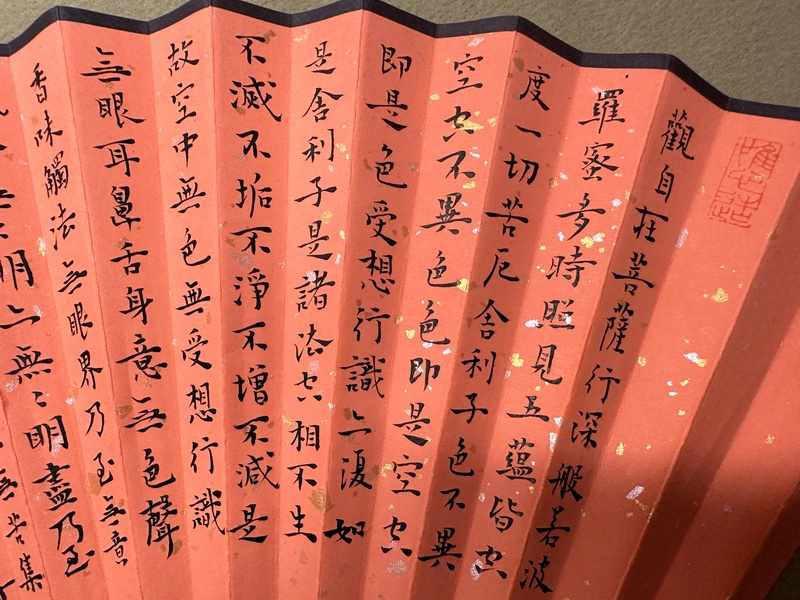 觀自在菩薩行深般若波
羅蜜多時照見五蘊皆空
度一切苦厄舍利子色不異
空空不異色色即是空空
即是色受想行識亦復如
是舍利子是諸法空相不生
不滅不垢不淨不增不減是
故空中無色無受想行識
無眼耳鼻舌身意無色聲
香味觸法無眼界乃至無意
明亦無〻明盡乃至
無苦集